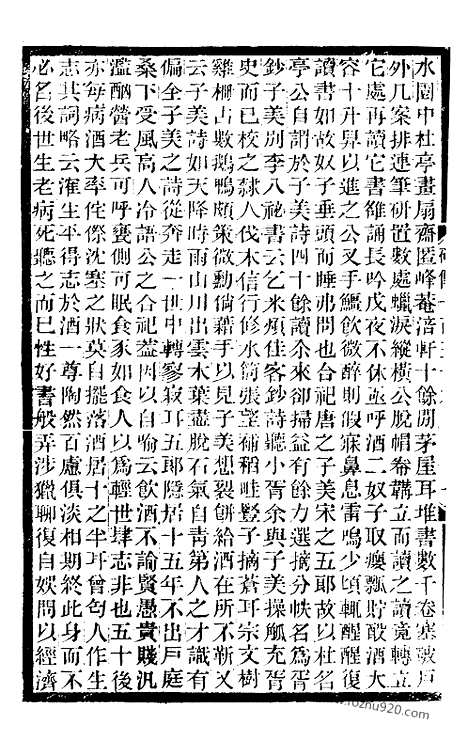 水圍中杜亭畫扇齋匿峰菴涪軒十餘閒茅屋耳堆書數千卷塞破戶
外几案排連筆研置數處蠟淚縱橫公脫帽帣韝立而讀之讀竟轉立
它處再讀它書雒誦長吟戍夜不休亟呼酒二奴子取癭瓢貯酘酒大
容十升舁以進之公叉手鱷飲微醉則假寐鼻息雷鳴少頃輒醒醒復
讀書如故奴子垂頭而睡弗問也合祀唐之子美宋之五耶故以杜名
亭公自謂於子美詩四十餘讀而本來卻掃益有餘力選摘分帙名爲胥
鈔子美別李八祕書云乞米煩佳客鈔詩聽小胥余與子美操觚充胥
史而已校之隸人伐木信行修水筒張望補稻畦豎子摘蒼耳宗文樹
雞柵占數鵝鴨頗策微勳倘藉手以見子美想裂餅給酒在所不靳又
云子美詩如天降時雨山川出雲木葉盡脫石氣自青第人之才識有
偏全子美之詩從奔走一世中轉寥寂耳五郎隱居十五年不出戶庭
桑下受風高人冷語公之合祀蓋四以自喻云飲酒不論賢愚貴賤汎
濫酬醟老兵可呼甕側可眠食豕如食人以爲輕世肆志非也五十後
亦每病酒大率侘傺沈塞之狀莫自擺落酒居十之半耳曾匄人作生
志其詞略云淮生平得志於酒一尊陶然百慮俱淡相期終此身而不
必名後世生老病死聽之而已性好書般弄涉獵聊復自娛間以經濟